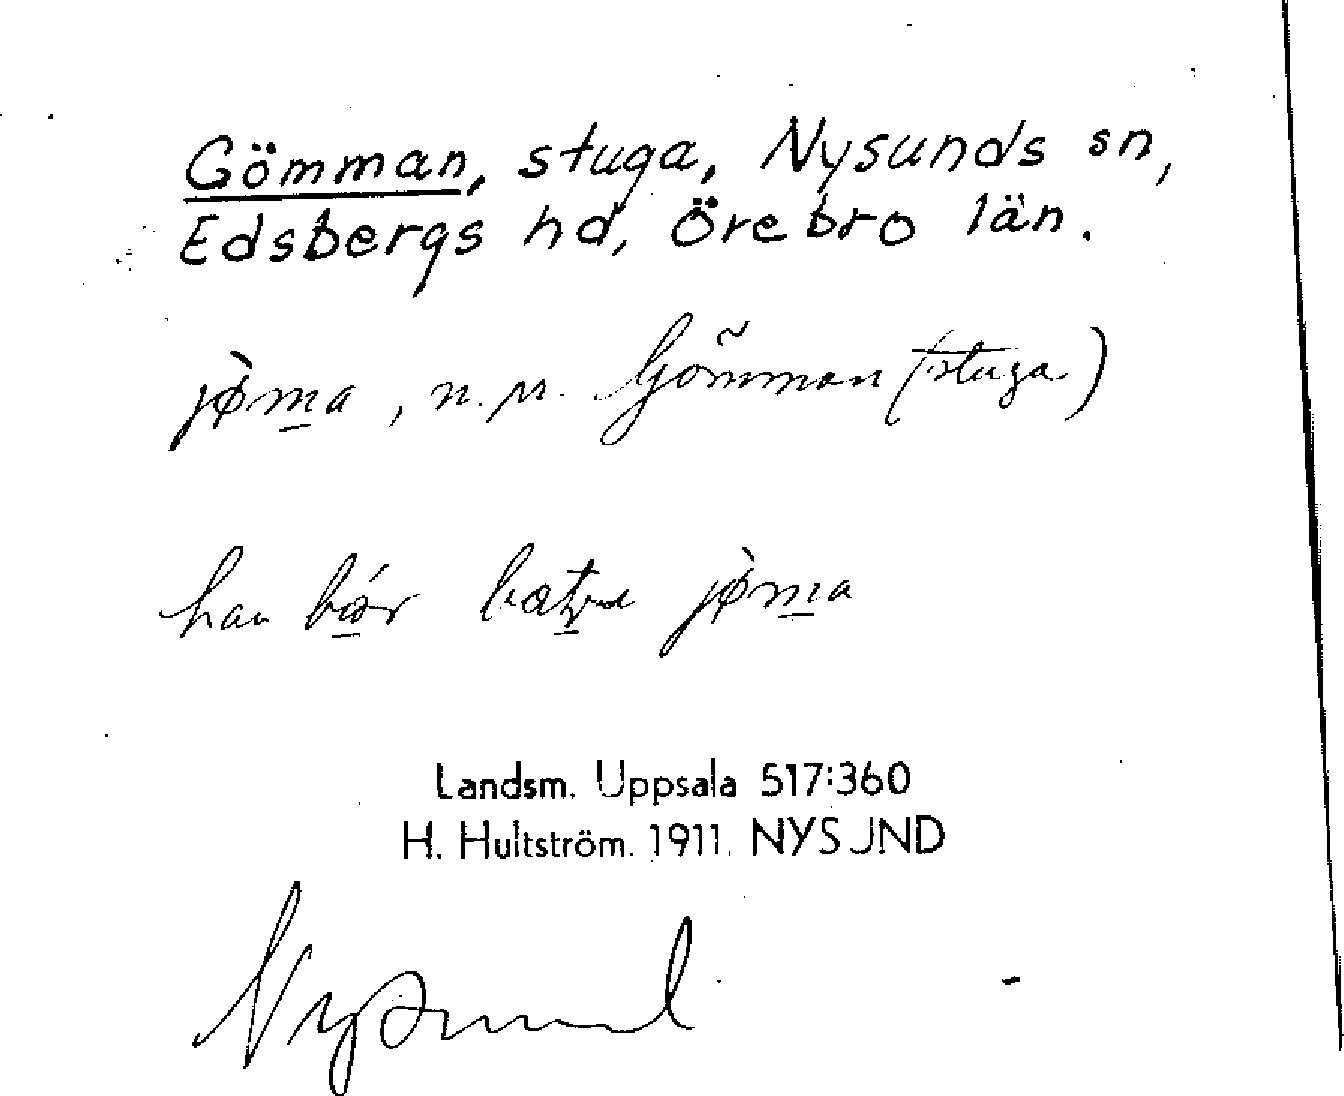 Gömman, stuga, Nysunds sn,
Edsbergs hd, Örebro län.
jø̀m̲a, n. pr. Gömman (stuga)
han jø̀m̲a
Landsm. Uppsala 517:360
H. Hultström. 1911. NYSUND
Nysund